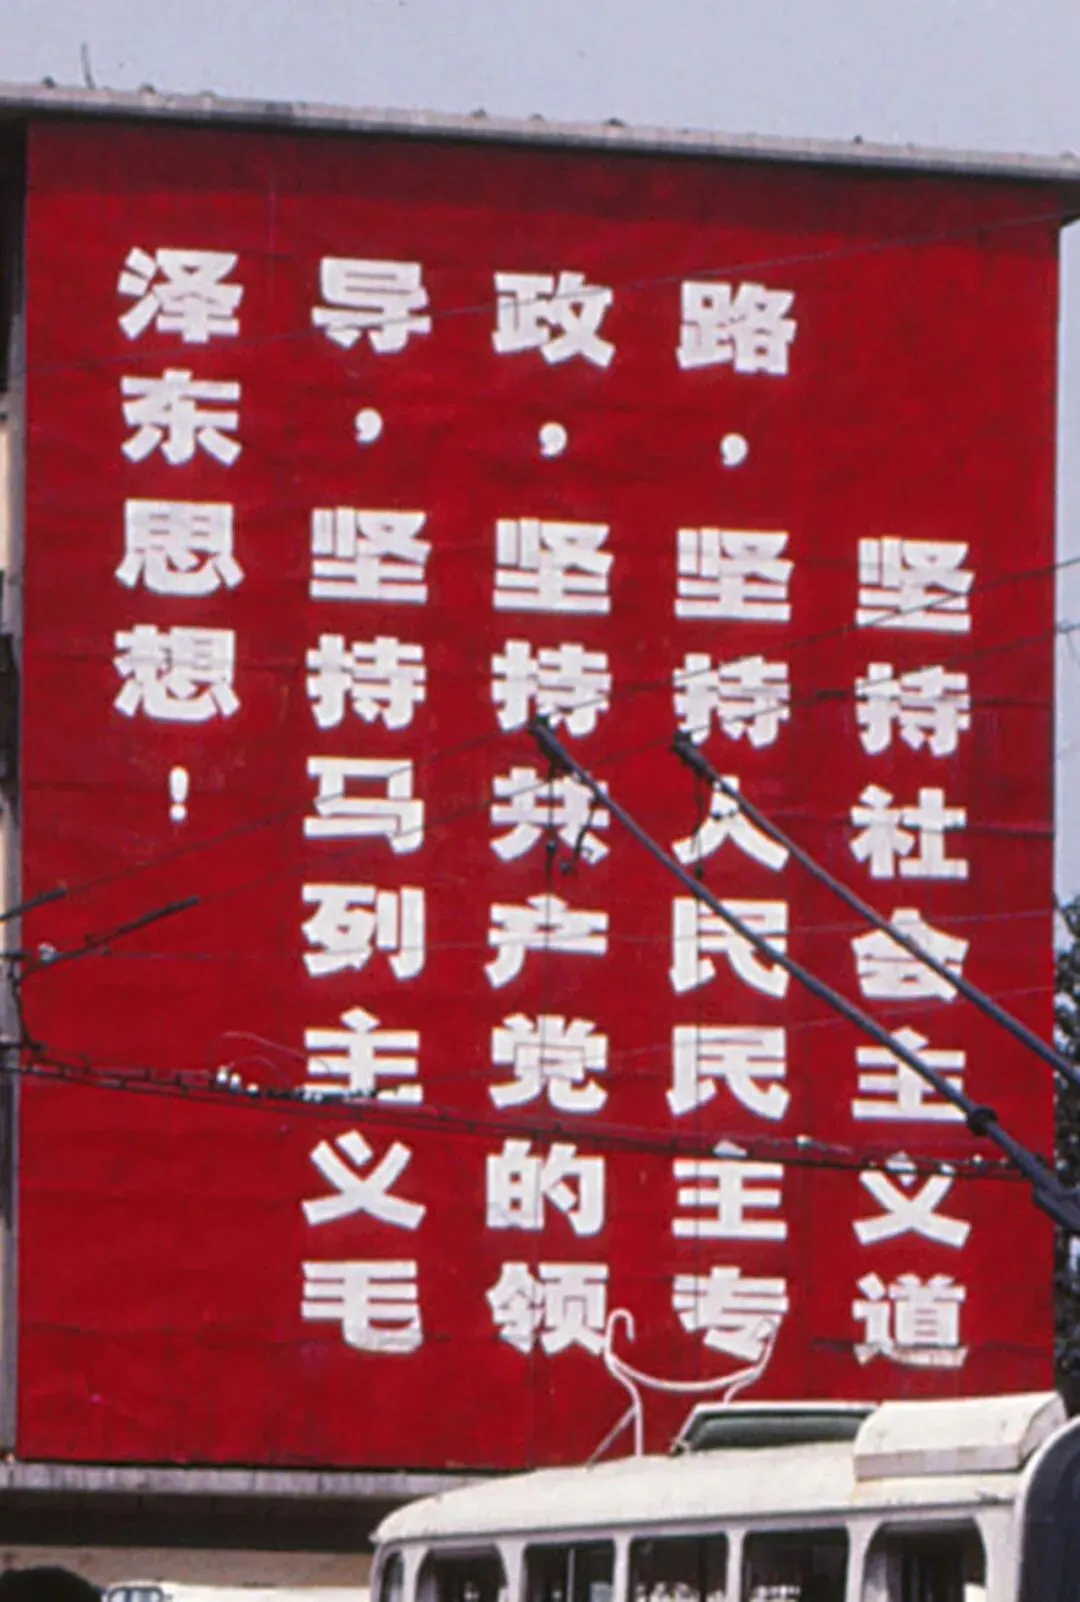 坚持社会主义道
路，坚持人民民主专
政，坚持共产党的领
导，坚持马列主义毛
泽东思想！